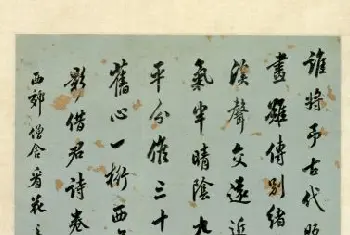 誰將予古代
畫難傳別緒
漢聲交遠近
氣半晴陰九
平分候三十
舊心一樹西
影借君詩卷
西郊僧舍看花